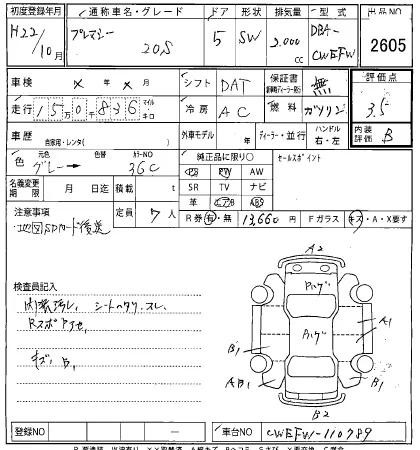 初度登録年月 通称車名・グレード ドア 形状 排気量 型式 出品NO
H22/10月 プレマシー 20S 5 SW 2,000cc DBA-CWEFW 2605
車検 × 年 × 月 シフト DAT 保証書 無 評価点
走行 15万0千836 マイル キロ 冷房 AC 燃料 ガソリン 3.5
車歴 自家用・レンタ( ) 外車モデル 年 ディーラー・並行 ハンドル 右・左 内装評価 B
色 元色 グレー → 色替 カラーNO 36C 純正品に限り○ セールスポイント
PS PW AW
名義変更期限 月 日迄 積載 t SR TV ナビ
革 エアB ABS
注意事項 定員 7人 R券 有・無 13,660円 Fガラス キズ・A・X要す
地図SDカード後送
検査員記入
内装汚レ、シートヘタリ、スレ
Rスポアセ、
キズ、B1
A2
Pハゲ
Pハゲ
A1
B1
B1
AB1
A1
B2
登録NO ー 車台NO CWEFW-110789